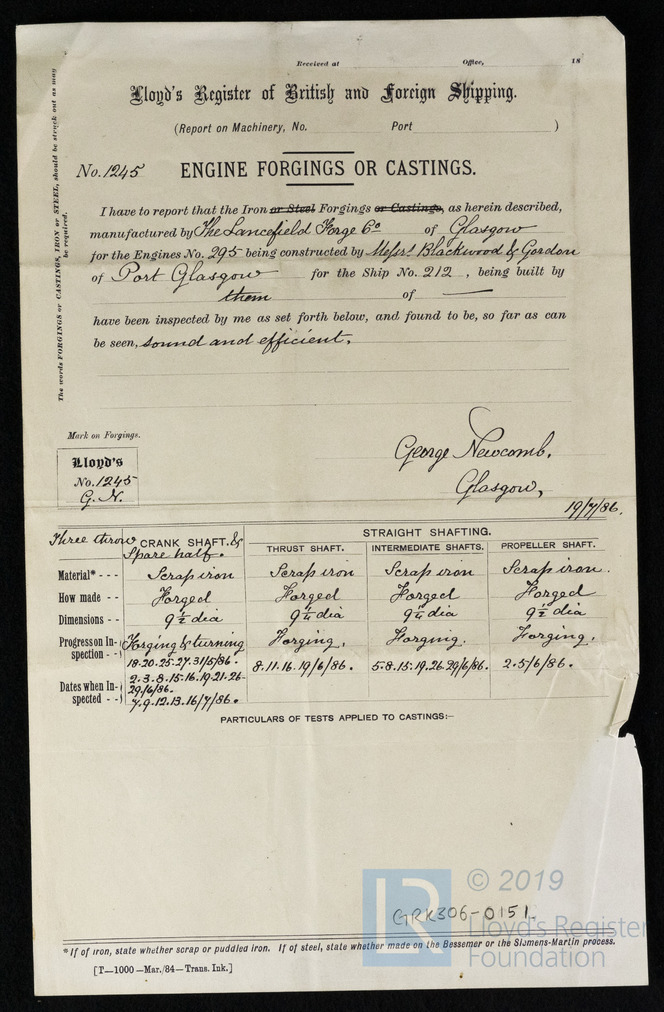 Received at Office, 18
Lloyd's Register of British and Foreign Shipping.
(Report on Machinery, No. Port )
No. 1245 ENGINE FORGINGS OR CASTINGS.
The words FORGINGS or CASTINGS, IRON or STEEL, should be struck out as may
be required.
I have to report that the Iron or Steel Forgings or Castings, as herein described,
manufactured by The Lancefield Forge Co of Glasgow
for the Engines No. 295 being constructed by Messrs Blackwood & Gordon
of Port Glasgow for the Ship No. 212, being built by
them of —
have been inspected by me as set forth below, and found to be, so far as can
be seen, sound and efficient.
Mark on Forgings.
Lloyd's
No. 1245
G. N.
George Newcomb.
Glasgow,
19/7/86.
Three throw CRANK SHAFT. &
Spare half.
STRAIGHT SHAFTING.
THRUST SHAFT. INTERMEDIATE SHAFTS. PROPELLER SHAFT.
Material* - - - Scrap iron Scrap iron Scrap iron Scrap iron.
How made - - Forged Forged Forged Forged
Dimensions - - 9 1/2 dia 9 1/4 dia 9 1/4 dia 9 1/2 dia
Progress on In- Forging & turning Forging. Forging. Forging.
spection - - 18.20.25.27.31/5/86. 8.11.16.19/6/86. 5.8.15.19.26.29/6/86. 2.5/6/86.
2.3.8.15.16.19.21.26.
Dates when In- 29/6/86.
spected - - 7.9.12.13.16/7/86.
PARTICULARS OF TESTS APPLIED TO CASTINGS:—
© 2019
GRK306-0151
LR
Lloyd's Register
Foundation
*If of iron, state whether scrap or puddled iron. If of steel, state whether made on the Bessemer or the Siemens-Martin process.
[T—1000—Mar./84—Trans. Ink.]